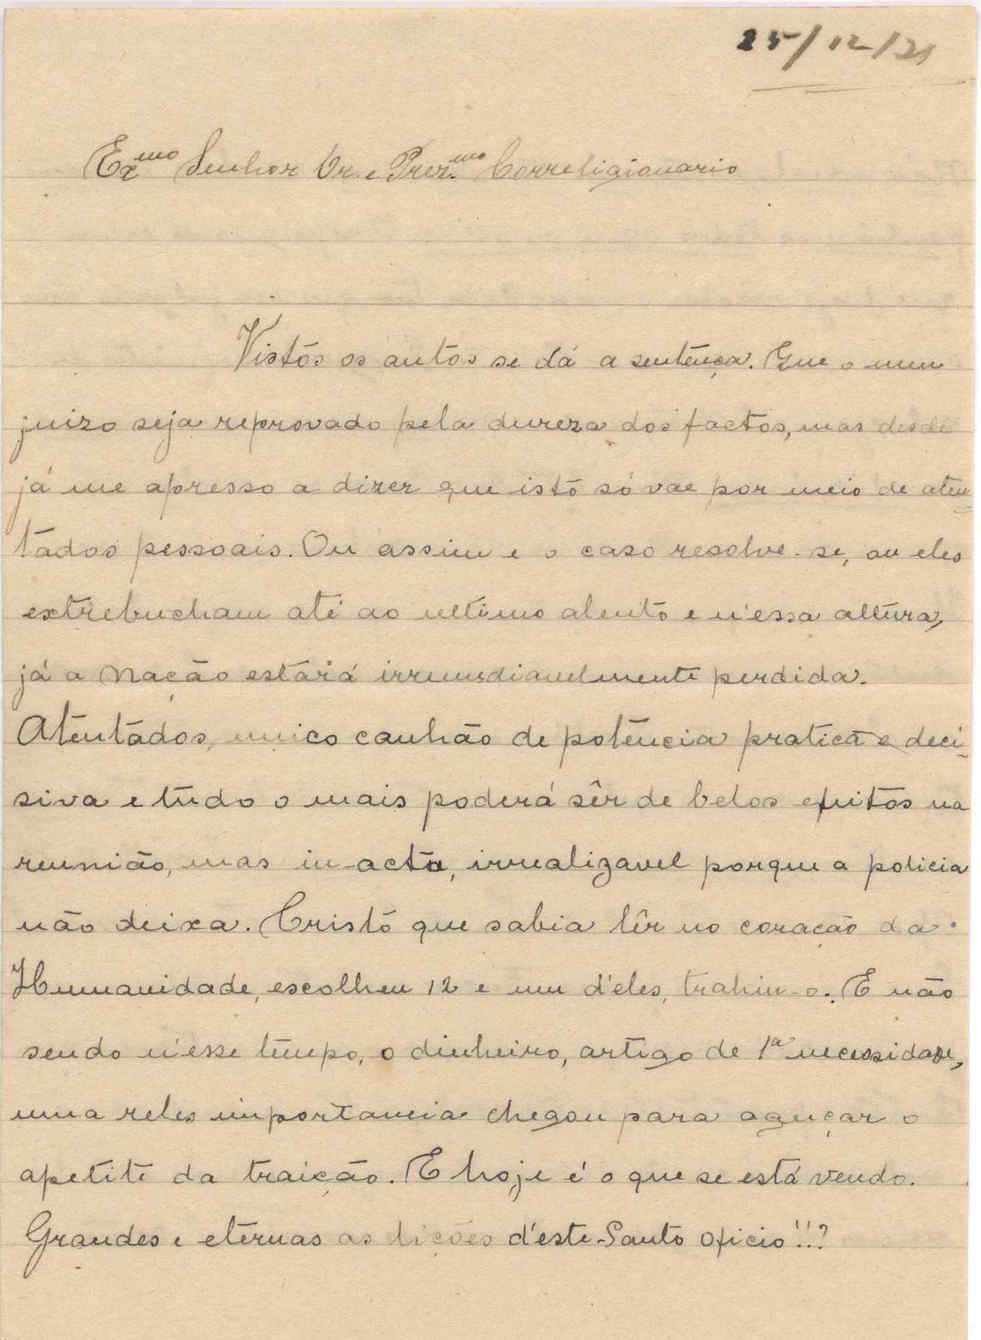 25/12/21
Exmo Senhor Dr. e Prezmo Correligionario
Vistos os autos se dá a sentença. Que o meu
juizo seja reprovado pela dureza dos factos, mas desde
já me apresso a dizer que isto só vae por meio de aten-
tados pessoais. Ou assim e o caso resolve-se, ou eles
extrebucham até ao ultimo alento e n'essa altura,
já a Nação estará irremediavelmente perdida.
Atentados, unico canhão de potência pratica e deci-
siva e tudo o mais poderá sêr de belos efeitos na
reunião, mas in-acto, irrealizavel porque a policia
não deixa. Cristo que sabia lêr no coração da
Humanidade, escolheu 12 e um d'eles, trahiu-o. E não
sendo n'esse tempo, o dinheiro, artigo de 1ª necessidade,
uma reles importancia chegou para aguçar o
apetite da traição. E hoje é o que se está vendo.
Grandes e eternas as lições d'este Santo Oficio!!?